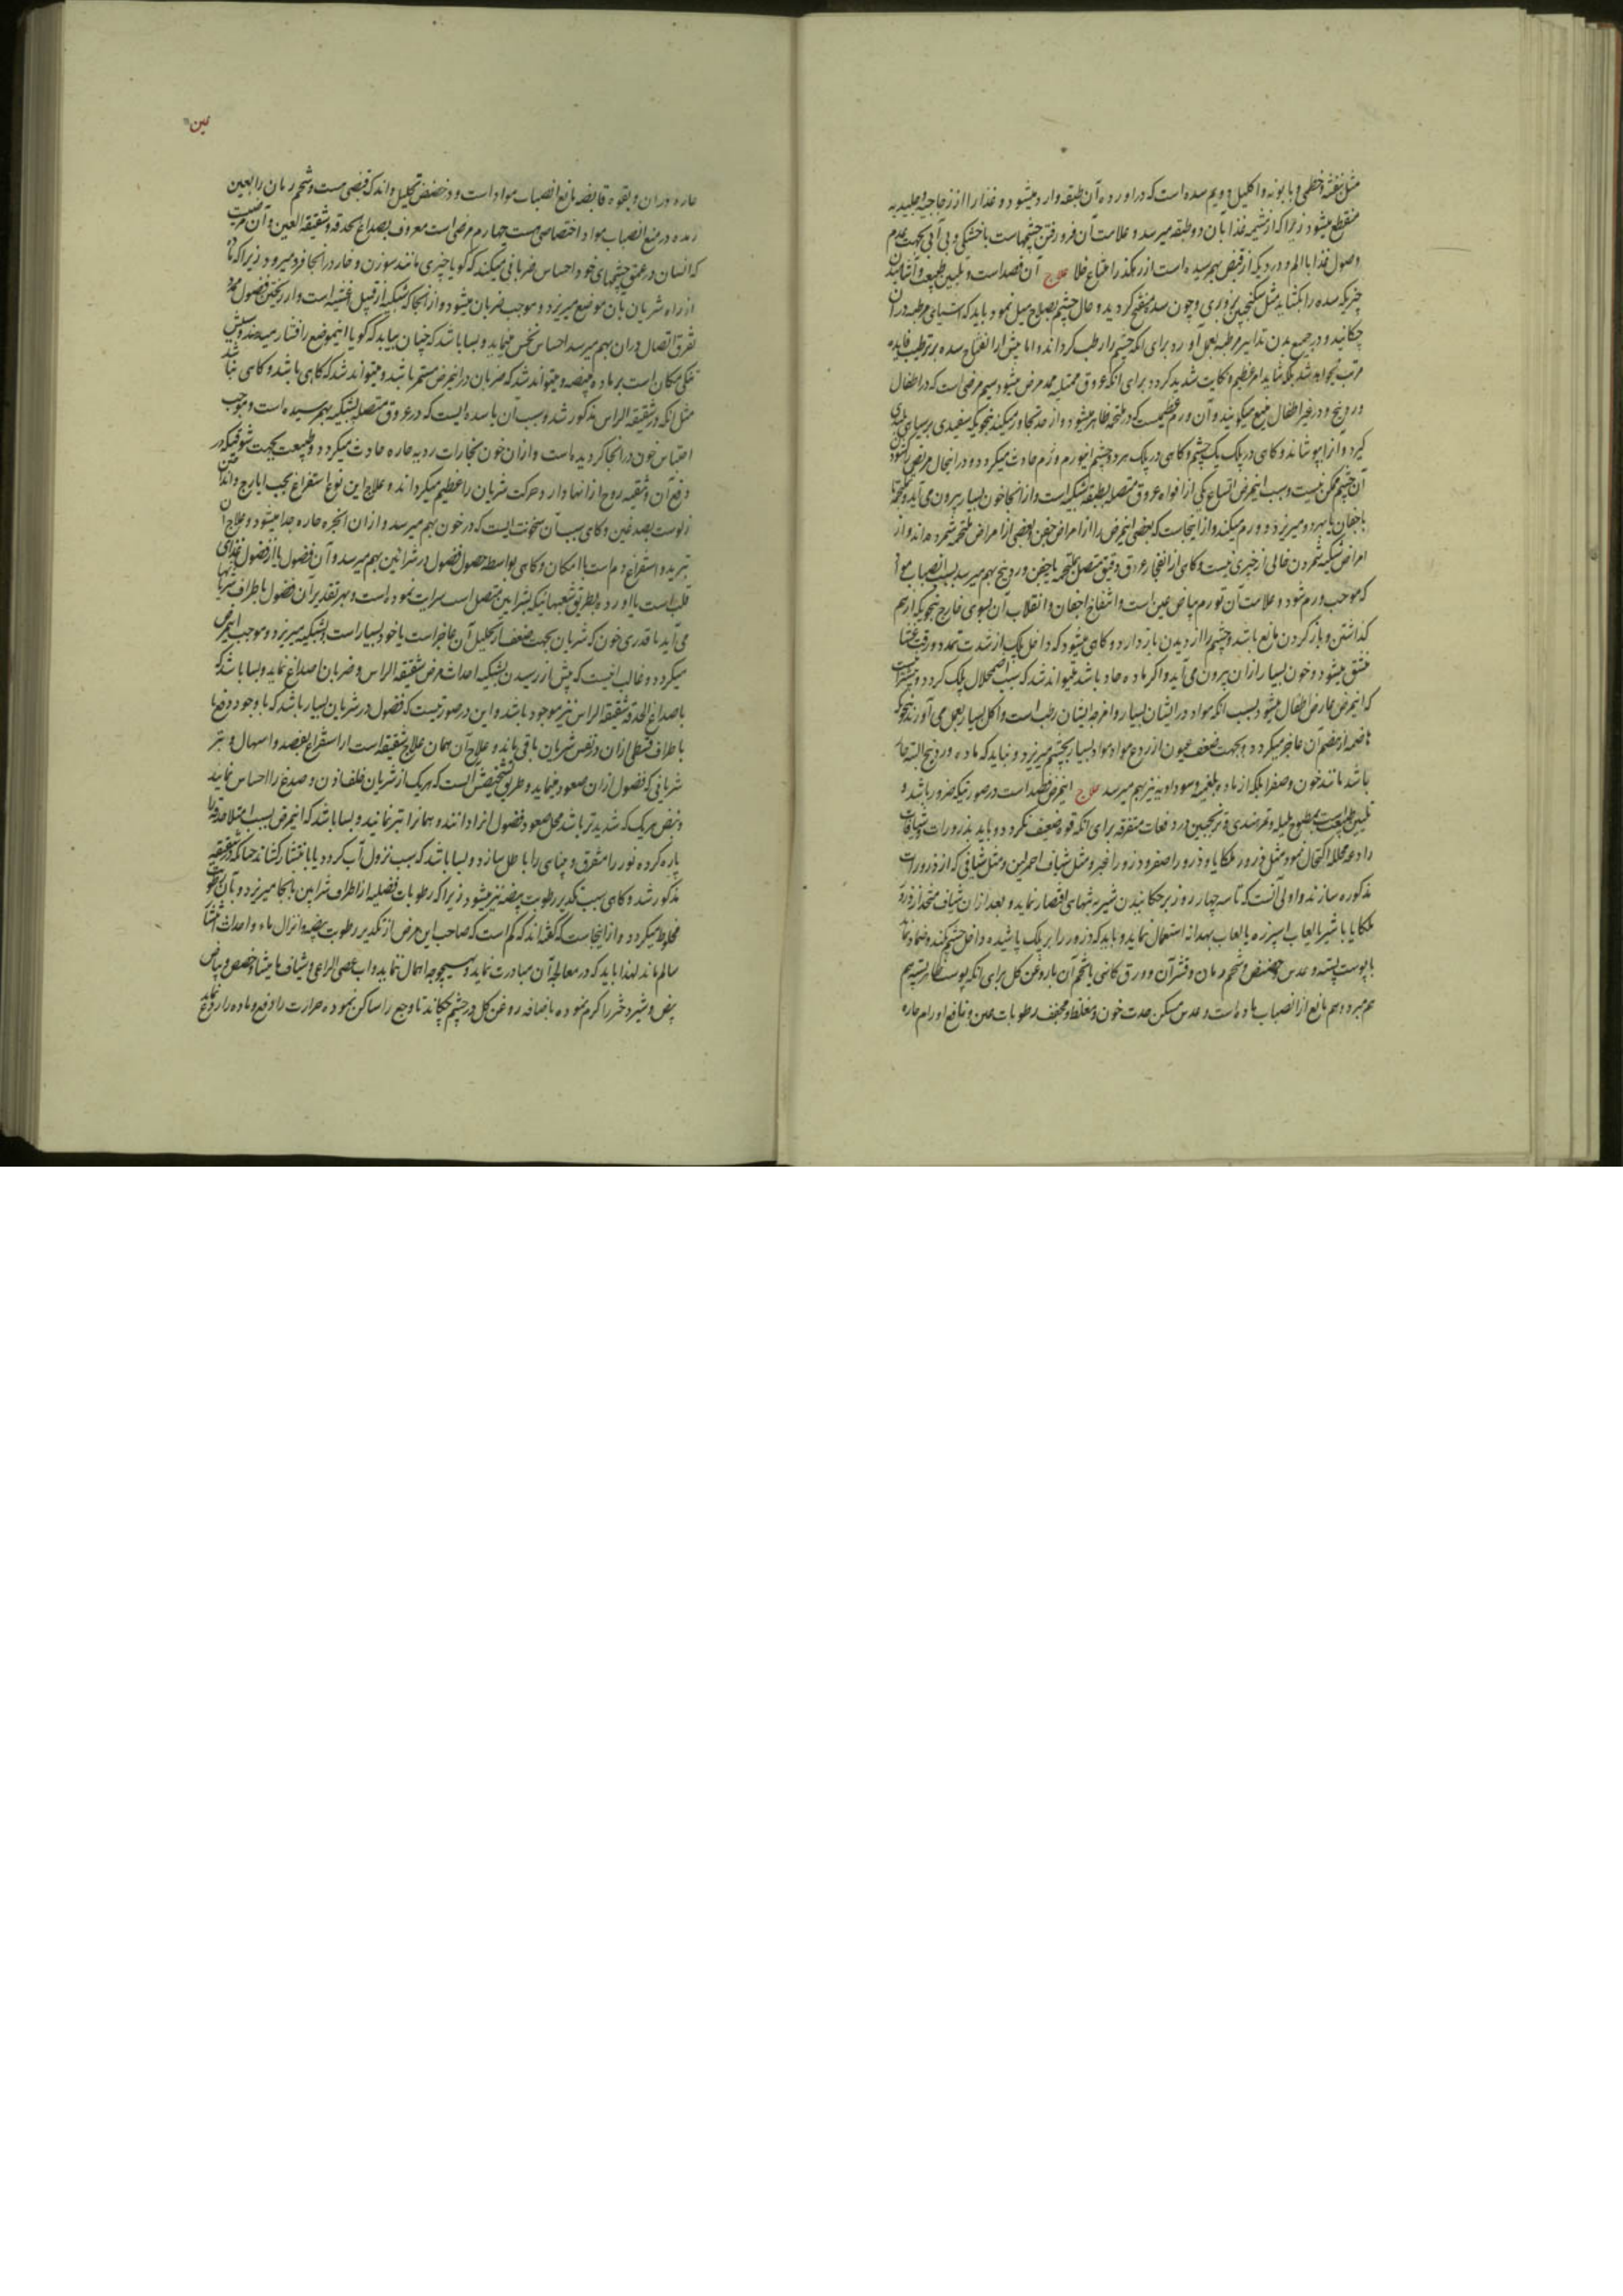 مثل بنفشه و خطمی و بابونه و اکلیل و دویم سده است که در اورده آن طبقه وارد میشود و غذا را از زجاجیه و جلیدیه
منقطع میشود زیرا که از مشیمه غذا بان دو طبقه میرسد و علامت آن فرو رفتن چشمهاست با خشکی و بی آبی بجهت عدم
وصول غذا با الم و دردیکه از قبض بهم رسیده است از رهکذر امتناع خلا علاج آن فصد است و تلیین طبیعت و آشامیدن
چیزیکه سده را بکشاید مثل سکنجبین بزوری و چون سده منفتح کردید و حال چشم بصلاح میل نمود باید که اشیای مرطبه در آن
چکانید و در جمیع بدن تدابیر مرطبه بعمل آورد برای انکه چشم را رطب کرداند و اما پیش از انفتاح سده بر ترطیب فایده
مرتب نخواهد شد بلکه شاید امر عظیم و نکایت شدید کردد برای انکه عروق ممتلیه محمد مرض میشود سیم مرضی است که در اطفال
وردینج و در غیر اطفال میکویند و آن ورم عظیمست که در ملتحمه ظاهر میشود و از حد تجاوز میکند بنحویکه سفیدی بر سیاهی بلندی
کیرد و آنرا بپوشاند و کاهی در پلک یک چشم و کاهی در پلک هر دو چشم نیز ورم حادث میکردد و در انحال مریض را کشودن
آن چشم ممکن نیست و سبب اینمرض اتساع یکی از افواه عروق متصله بطبقه شبکیه است و از انجا خون بسیار بیرون می آید و بملتحمه یا
باجفان یا بهر دو میریزد و ورم میکند و از اینجاست که بعضی اینمرض را از امراض جفن و بعضی از امراض ملتحمه شمرده اند و از
امراض شبکیه شمردن خالی از خبری نیست و کاهی از انفجار عروق دقیق متصل بملتحمه یا جفن وردینج بهم میرسد بسبب انصباب مواد
که موجب ورم شود و علامت آن تورم بیاض عین است و انتفاخ اجفان و انقلاب آن بسوی خارج بنحویکه از هم
کذاشتن و باز کردن مانع باشد و چشم را از دیدن باز دارد و کاهی میشود که داخل پلک از شدت تمدد و رقت غشا
منشق میشود و خون بسیار ازان بیرون می آید و اکر ماده حاد باشد میتواند شد که سبب اضمحلال پلک کردد و بیشتر
که اینمرض عارض اطفال میشود بسبب انکه مواد در ایشان بسیار و امزجه ایشان رطب است و اکل بسیار بعمل می آورند بنحویکه
هاضمه از هضم آن عاجز میکردد و بجهت ضعف عیون از ردع مواد مواد بسیار بچشم میریزد و نباید که ماده وردینج البته حار
باشد مانند خون و صفرا بلکه از ماده بلغمیه و سوداویه نیز بهم میرسد علاج اینمرض فصد است در صورتیکه ضرور باشد و
تلیین طبیعت بمطبوخ هلیله و تمرهندی و ترنجبین در دفعات متفرقه برای انکه قوه ضعیف نکردد و باید بذرورات و شیافات
رادعه محلله اکتحال نمود مثل ذرور ملکایا و ذرور اصفر و ذرور اغبر و مثل شیاف احمر لین و مثل شیافی که از ذرورات
مذکوره سازند و اولی آنست که تا سه چهار روز بر چکانیدن شیر به تنهای اقتصار نماید و بعد از ان شیاف متخذ از ذرور
ملکایا با شیر یا لعاب اسپرزه یا لعاب بهدانه استعمال نماید و باید که ذرور را بر پلک پاشیده داخل چشم نکند و ضماد نماید
با پوست پسته و عدس و حضض و شحم رمان و قشر آن و ورق کاسنی یا شحم آن با روغن کل برای انکه پوست ظاهر پسته هم
هم مبرد و هم مانع از انصباب ماده است و عدس مسکن حدت خون و مغلظ و مجفف رطوبات عین و نافع اورام حاره
عین
حاره در ان و بقوه قابضه مانع انصباب مواد است و در حضض تحلیل و اندک قبضی هست و شحم رمان را بعین
رمده در منع انصباب مواد اختصاصی هست چهارم مرضی است معروف بصداع الحدقه و شقیقه العین و آن مرضیست
که انسان در عمق چشمهای خود احساس ضربانی میکند که کویا چیزی مانند سوزن و خار در انجا فرو میرود زیرا که
از راه شریان بان موضع میریزد و موجب ضربان میشود و از انجا که شبکیه از قبیل اغشیه است و از ریختن فضول ممدد
تفرق اتصال در ان بهم میرسد احساس نخس مینماید و بسا باشد که چنان بیابد که کویا اینموضع را فشار میدهند و سببش
تنکی مکان است بر ماده منصبه و میتواند شد که ضربان در اینمرض مستمر باشد و میتواند شد که کاهی باشد و کاهی نباشد
مثل انکه در شقیقه الراس مذکور شد و سبب آن یا سده ایست که در عروق متصله بشبکیه بهم رسیده است و موجب
احتباس خون در انجا کردیده است و از ان خون بخارات ردیه حاره حادث میکردد و طبیعت بجهت شوقیکه در
دفع آن و تنقیه روح از انها دارد حرکت شریان را عظیم میکرداند و علاج این نوع استفراغ بحب ایارج و انداختن
زلوست بصدغین و کاهی سبب آن سخونت ایست که در خون بهم میرسد و از ان ابخره حاره جدا میشود و علاج آن
تبرید و استفراغ دم است با امکان و کاهی بواسطه حصول فضول در شرائین بهم میرسد و آن فضول یا از فضول غذای
قلب است یا از ورده بطریق شعبهائیکه بشرایین متصل است سرایت نموده است و بهر تقدیر آن فضول باطراف شریانها
می آید با قدری خون که شریان بجهت ضعف از تحلیل آن عاجز است یا خود بسیار است و بشبکیه میریزد و موجب اینمرض
میکردد و غالب اینست که پیش از رسیدن بشبکیه احداث مرض شقیقه الراس و ضربان اصداغ نماید و بسا باشد که
با صداع الحدقه شقیقه الراس نیز موجود باشد و این در صورتیست که فضول در شریان بسیار باشد که با وجود دفع با
باطراف قسطی از ان در نفس شریان باقی ماند و علاج آن همان علاج شقیقه است از استفراغ بفصد و اسهال و بتر
شریانی که فضول از ان صعود مینماید و طریق تشخیصش آنست که هر یک از شریان خلف اذن و صدغ را احساس نماید
و نبض هر یک که شدیدتر باشد محل صعود فضول انرا دانند و همانرا بتر نمایند و بسا باشد که اینمرض بسبب امتلا حدقه را
پاره کرده نور را متفرق و بینای را باطل سازد و بسا باشد که سبب نزول آب کردد یا بانتشار کشاند چنانکه در شقیقه
مذکور شد و کاهی سبب تکدیر رطوبت بیضه نیز میشود زیرا که رطوبات فضلیه از اطراف شرایین بانجا میریزد و بان رطوبت
مخلوط میکردد و از اینجاست که کفته اند که کم است که صاحب این مرض از تکدیر رطوبت بیضیه و انزال ماء و احداث انتشار
سالم ماند لهذا باید که در معالجه آن مبادرت نماید و بهیچوجه اهمال ننماید و اب عصی الراعی و شیاف مامیثا و حضض و بیاض
بیض و شیر دختر را کرم نموده باضافه روغن کل در چشم چکاند تا وجع را ساکن نموده حرارت را دفع و ماده را ردع نماید